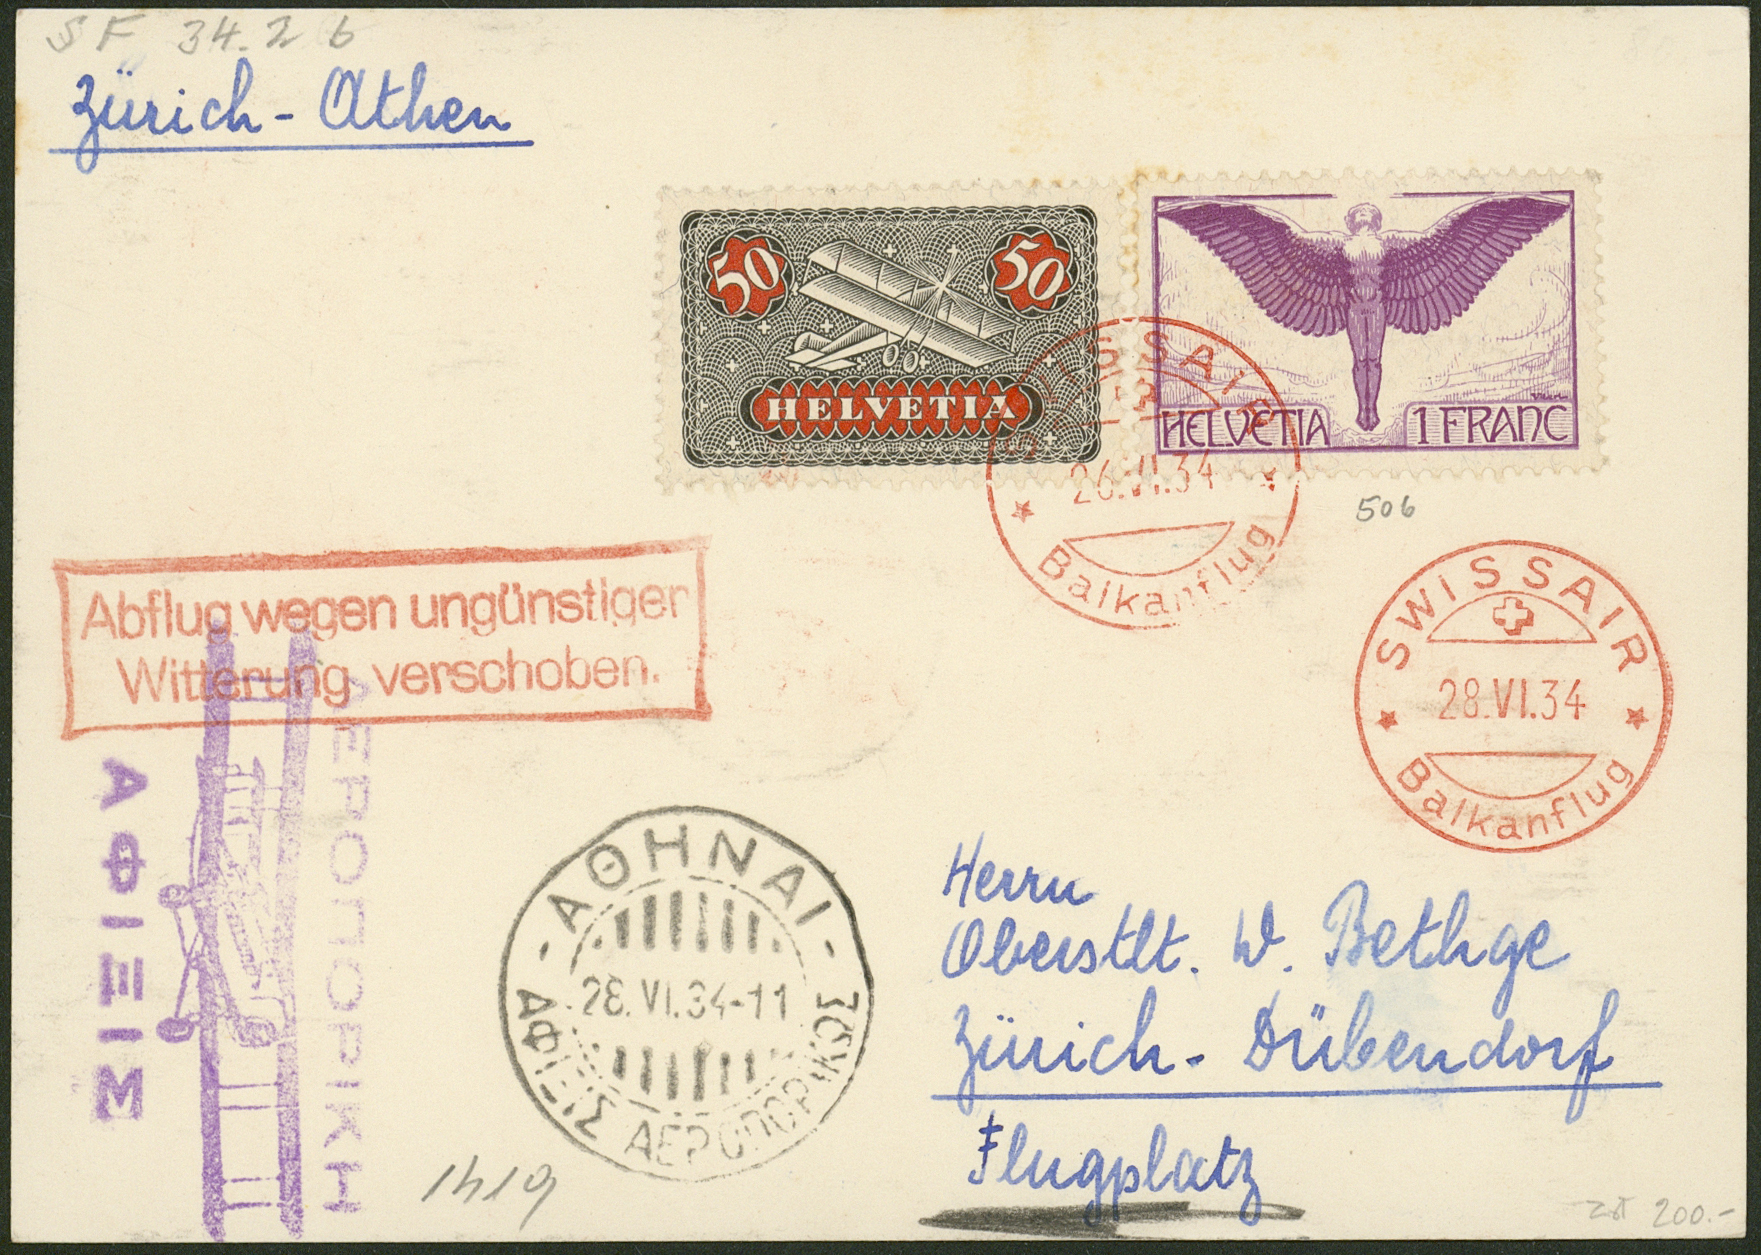 SF 34.2 b
Zürich - Athen
50
50
HELVETIA
HELVETIA
1 FRANC
SWISSAIR
26.VI.34
Balkanflug
506
Abflug wegen ungünstiger
Witterung verschoben.
SWISSAIR
28.VI.34
Balkanflug
ΑΕΡΟΠΟΡΙΚΗ
ΑΦΙΞΙΣ
-ΑΘΗΝΑΙ-
28.VI.34-11
Herrn
Oberstlt. W. Bethge
Zürich - Dübendorf
Flugplatz
200.-